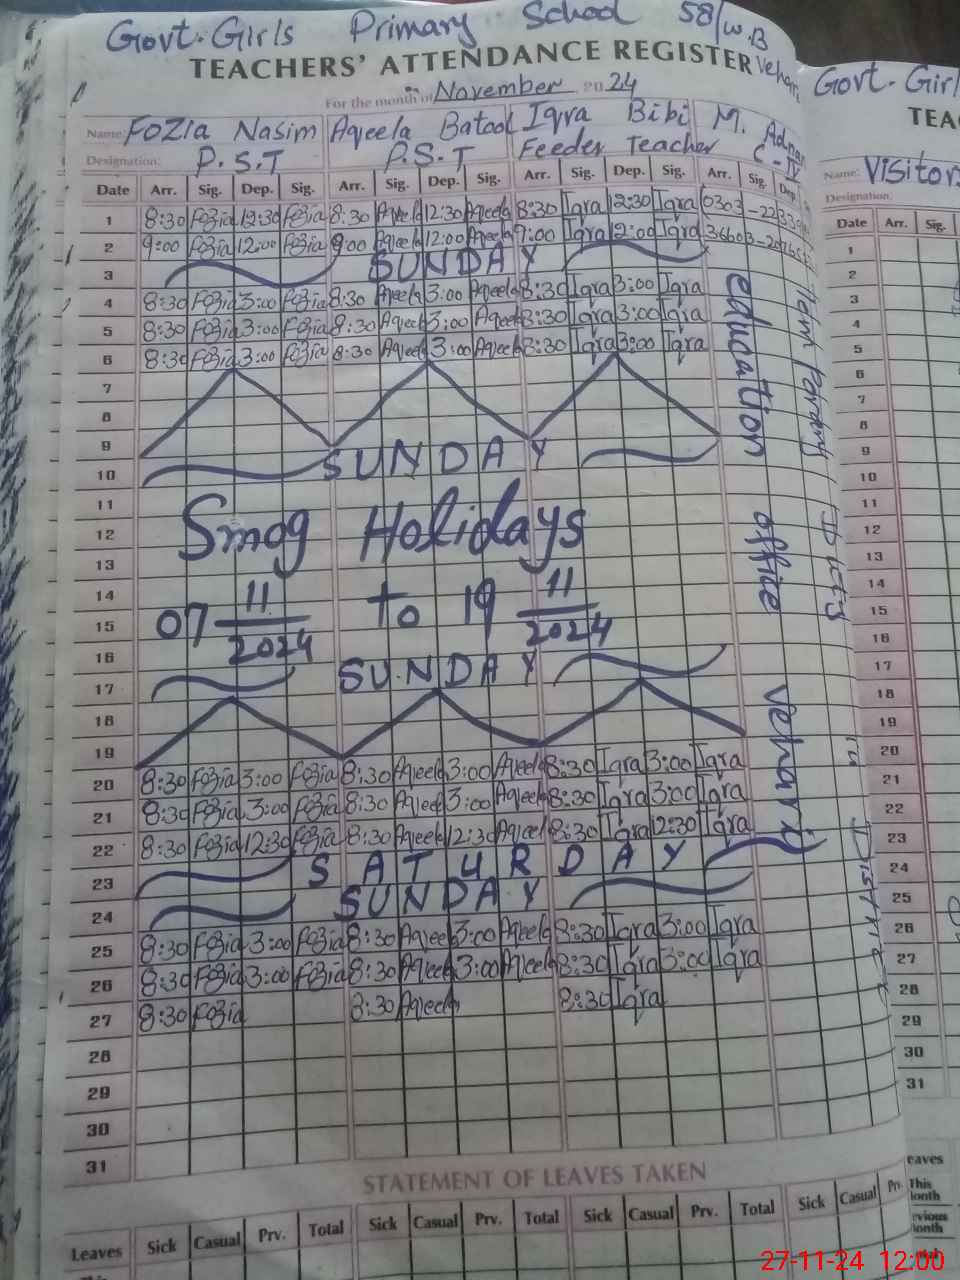 Govt. Girls Primary School 58/W.B
Vehari
TEACHERS' ATTENDANCE REGISTER
For the month of November 2024
Name: Fozia Nasim Aqeela Batool Iqra Bibi M. Adnan
Designation: P.S.T P.S.T Feeder Teacher C-IV
Date Arr. Sig. Dep. Sig. Arr. Sig. Dep. Sig. Arr. Sig. Dep. Sig. Arr. Sig. Dep.
1 8:30 Fozia 12:30 Fozia 8:30 Aqeela 12:30 Aqeela 8:30 Iqra 12:30 Iqra
2 9:00 Fozia 12:00 Fozia 9:00 Aqeela 12:00 Aqeela 9:00 Iqra 12:00 Iqra
3 SUNDAY
4 8:30 Fozia 3:00 Fozia 8:30 Aqeela 3:00 Aqeela 8:30 Iqra 3:00 Iqra
5 8:30 Fozia 3:00 Fozia 8:30 Aqeela 3:00 Aqeela 8:30 Iqra 3:00 Iqra
6 8:30 Fozia 3:00 Fozia 8:30 Aqeela 3:00 Aqeela 8:30 Iqra 3:00 Iqra
7
8
9
10 SUNDAY
11
12 Smog Holidays
13
14
15 07 11/2024 to 19 11/2024
16
17 SUNDAY
18
19
20 8:30 Fozia 3:00 Fozia 8:30 Aqeela 3:00 Aqeela 8:30 Iqra 3:00 Iqra
21 8:30 Fozia 3:00 Fozia 8:30 Aqeela 3:00 Aqeela 8:30 Iqra 3:00 Iqra
22 8:30 Fozia 12:30 Fozia 8:30 Aqeela 12:30 Aqeela 8:30 Iqra 12:30 Iqra
23 SATURDAY
24 SUNDAY
25 8:30 Fozia 3:00 Fozia 8:30 Aqeela 3:00 Aqeela 8:30 Iqra 3:00 Iqra
26 8:30 Fozia 3:00 Fozia 8:30 Aqeela 3:00 Aqeela 8:30 Iqra 3:00 Iqra
27 8:30 Fozia 8:30 Aqeela 8:30 Iqra
28
29
30
31
education office vehari
District
STATEMENT OF LEAVES TAKEN
Leaves Sick Casual Prv. Total Sick Casual Prv. Total Sick Casual Prv. Total Sick Casual Prv.
Govt. Girl
TEA
Name: Visitor
Designation:
Date Arr. Sig.
1
2
3
4
5
6
7
8
9
10
11
12
13
14
15
16
17
18
19
20
21
22
23
24
25
26
27
28
29
30
31
27-11-24 12:00